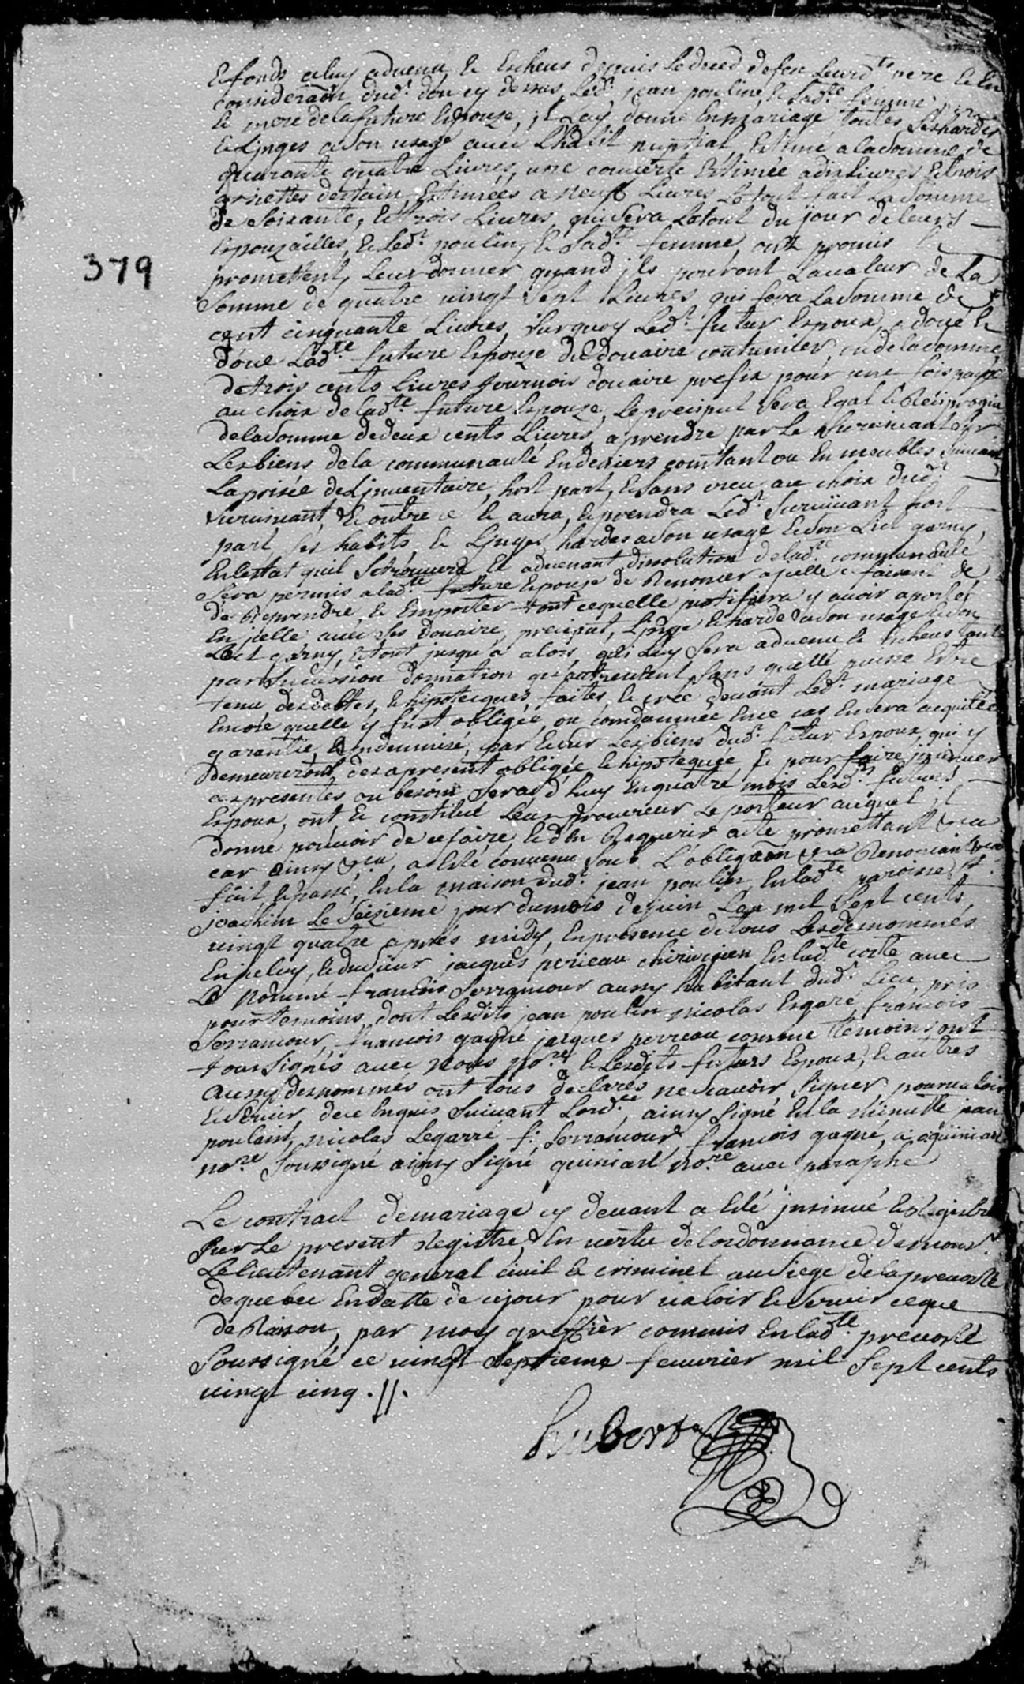 Et fonds a luy advenu et Escheus depuis le deced de feu Leurd.te mere Et En
consideration dud. don cy dessus, Led.t jean poulin, et lad.te femme pere
Et mere de la future Espouze, ont donné En mariage toutes Ses hardes
Et Linges a Son usage avec Lhabit nuptial, Estimé a la Somme de
quarante quatre Livres, une couverte Estimée a dix Livres Et trois
assiettes destain, Estimées a neuf Livres Le tout fait La Somme
de Soixante, Et trois Livres, qui Sera Le tout du jour de leurs
Espouzailles, Et Led.t poulin, Et Sad.te femme, ont promis Et
379
promettent, Leur donner quand ils pouront La valeur de La
Somme de quatre vingt Sept Livres, qui fera La Somme de
cent cinquante Livres, Surquoy Led.t futur Espoux, a doué Et
Doue Lad.te future Espouze du Douaire coutumier, ou de la Somme
de trois cents Livres tournois douaire prefix pour une fois payé
au choix de lad.te future Espouze, Le preciput Sera Egal Et Reciproque
de la Somme de deux cents Livres, a prendre par Le Survivant Sur
Les biens de la communauté En deniers comptant ou En meubles Suivant
La prisée de L'inventaire, hort part, Et Sans creu au choix dud.t
Survivant, Et outre ce Et aura, Et prendra Led.t Survivant hort
part, Ses habits Et Linges hardes a Son usage Et Son Lict garny,
En Lestat quil Se trouvera Et advenant disolution de lad.te communauté
Sera permis a lad.te future Espouze de Renoncer a icelle ce faisant de
de Reprendre, Et Emporter tout ce quelle justifiera y avoir aporté
En icelle avec Ses douaire, preciput, Linge Et harde a Son usage Et Son
Lict garny, Et tout jusqu'a alors, qui Luy Sera advenu Et Escheus tant
par Succession donnation quautrement Sans quelle puisse Estre
tenu des debtes, Et hipotecques, faites, Et creé devant Led.t mariage
Encore quelle y fust obligée, ou condamnée En ce cas En Sera acquittée
garantie, Et Indemnisé, par Et Sur Les biens dud.t futur Espoux qui y
Demeureront, des apresent obligée Et hipotequée Et pour faire Insinuer
ces presentes ou besoin Sera d'huy En quatre mois Lesd.ts futurs
Espoux, ont Et constitué Leur procureur Le porteur auquel il
donne pouvoir de ce faire, Et d'En Requerir acte promettant &ca
car Ainsy &ca, a Esté convenu Sous L'obligation &ca Renonciant &ca
fait Et passé, En la maison dud.t jean poulin En lad.te paroisse S.t
joachim Le Seizieme jour du mois de juin L'an mil Sept cents
vingt quatre apres midy, En presence de tous Les denommés
En jceluy, Et du Sieur jacques perieau chirurgien En lad.te coste avec
Le nommé francois Serramour aussy habitant dud.t Lieu, pris
pour temoins, dont Lesdits jean poulin nicolas Legaré, francois
Serramour, francois gagné jacques perieau comme temoins ont
tous Signés avec nous no.re Et Lesdits futurs Espoux, Et autres
Aussy denommés ont tous declarés ne Scavoir Signer pour valoir
Et Servir de ce Enquis Suivant Lord.ce ainsy Signé En la Minutte jean
poulain, nicolas Legarré f: Serramour, francois gagné,
no.re Soussigné ainsy Signé quiniart no.re avec paraphe
Le contract de mariage cy devant a Esté jnsinué Et Registré
Sur Le present Registre, En vertu de Lordonnance de mons.r
Le lieutenant general civil Et criminel au Siege de la prevosté
de quebec En datte de ce jour pour valoir Et Servir ce que
de Raison, par moy greffier commis En lad.te prevosté
Soussigné ce vingt Septieme fevrier mil Sept cents
vingt cinq .//.
hubert